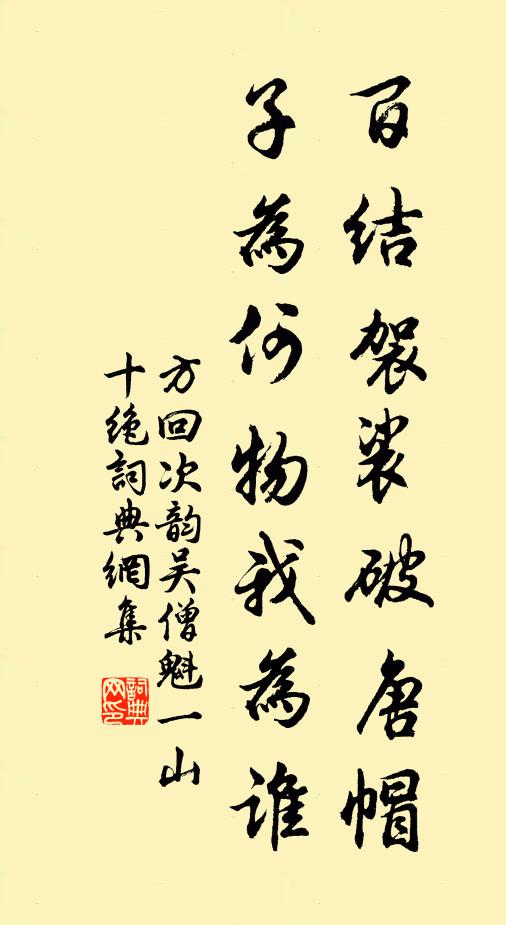 百结袈裟破唐帽
子為何物我為谁
方回次韵吴僧魁一山
十绝詞典網集
詞典
网印